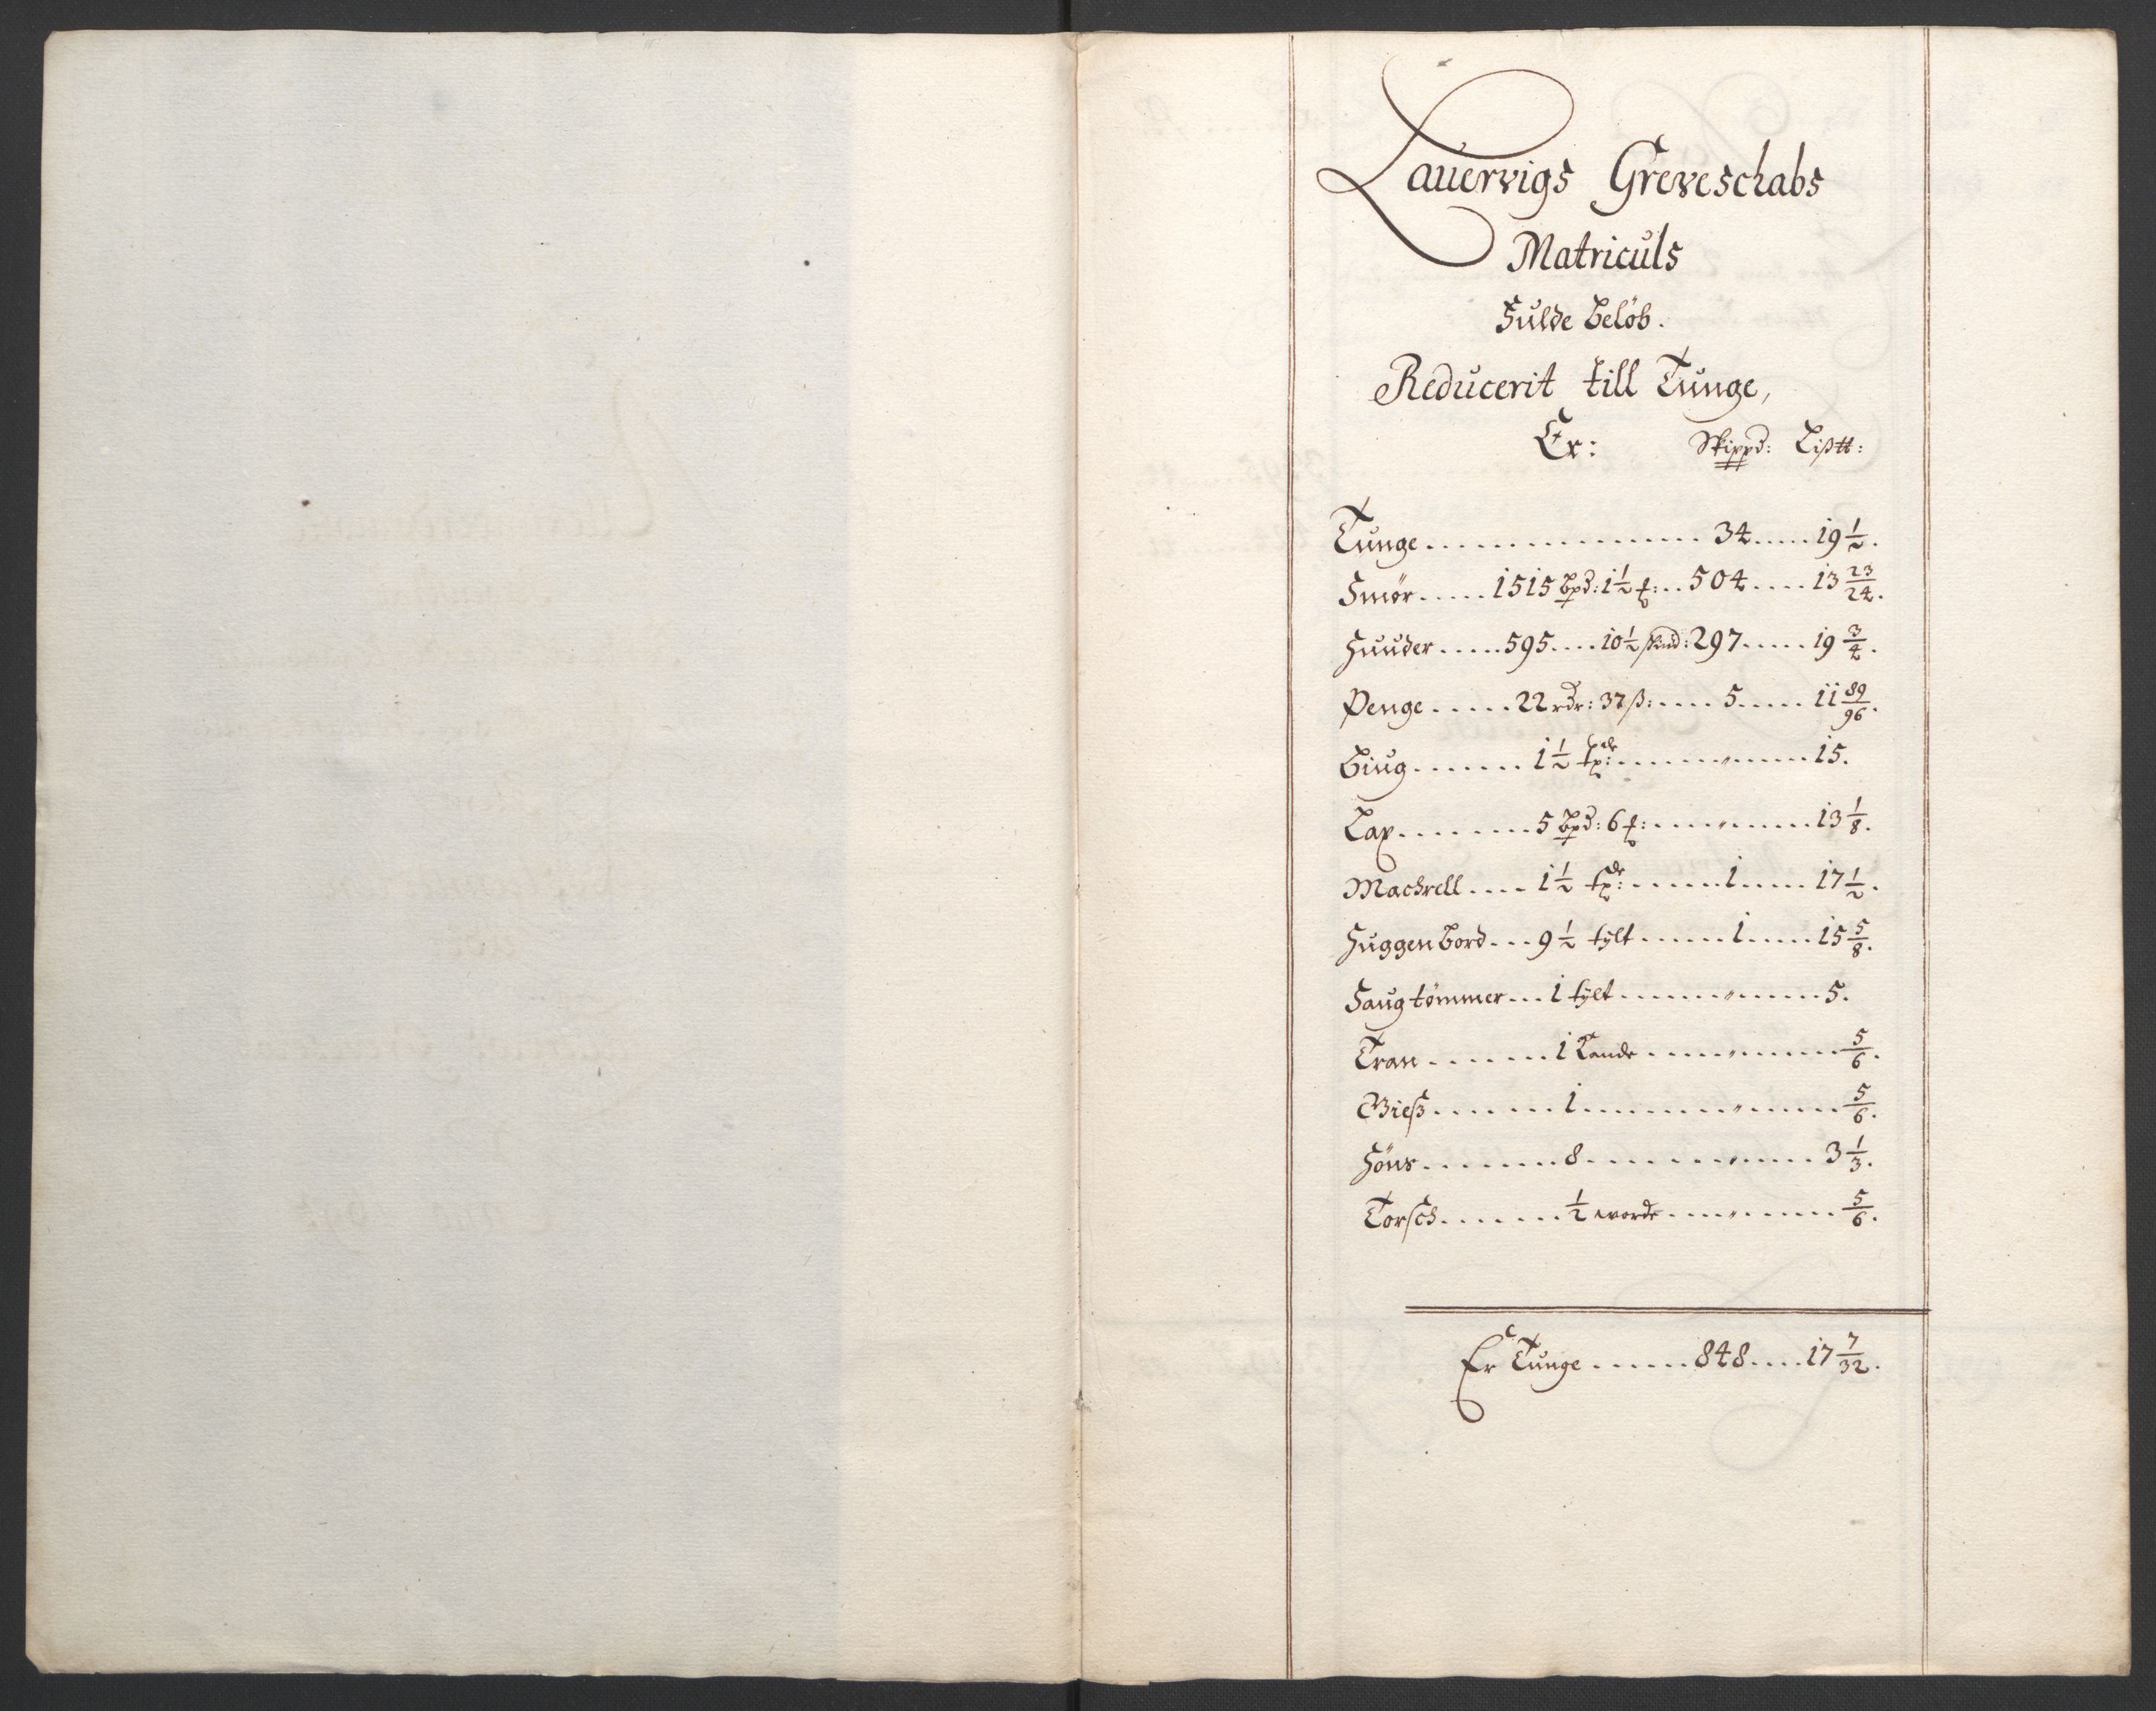 Lauervigs Greveschabs
Matriculs
Fulde Beløb.
Reducerit till Tunge,
Er: Skippd: Lißtt:
Tunge ................ 34 ..... 19 1/2.
Smør ..... 1515 Bpd: 1 1/2 ℔: .. 504 .... 13 23/24.
Huuder ..... 595 .... 10 1/2 skind: 297 ..... 19 3/4.
Penge ..... 22 rdr: 37 ß: .... 5 ..... 11 89/96.
Biug ....... 1 1/2 tp: ......„...... 15.
Lax ........ 5 Bpd: 6 ℔: .....„...... 13 1/8.
Mackrell .... 1 1/2 tp: ....... 1 ..... 17 1/2.
Huggen Bord ... 9 1/2 tylt ...... 1 ..... 15 5/8.
Saugtømmer ... 1 tylt ......„..... 5.
Tran ....... 1 Kande .....„...... 5/6.
Gieß ....... 1 ........„...... 5/6.
Höns ........ 8 .......„..... 3 1/3.
Torsch ....... 1/2 worde ....„...... 5/6.
Er Tunge ...... 848 .... 17 7/32.